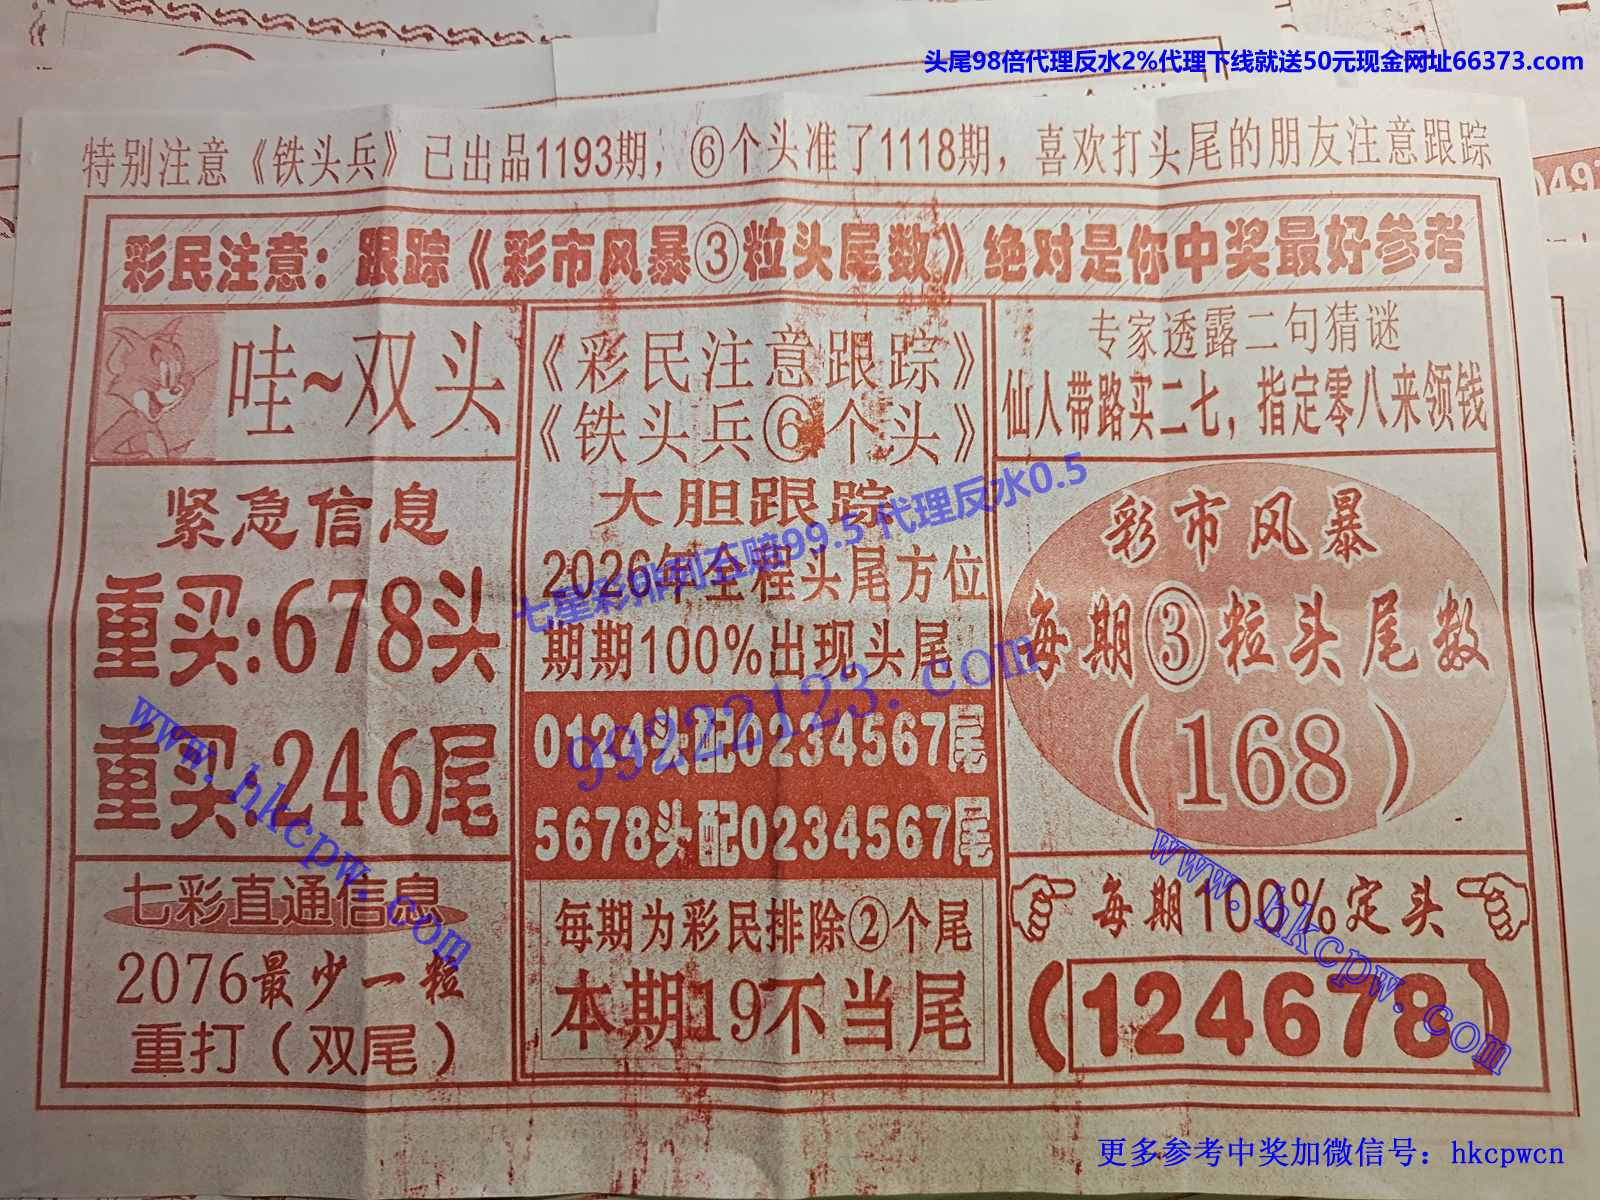 头尾98倍代理反水2%代理下线就送50元现金网址66373.com
特别注意《铁头兵》已出品1193期，⑥个头准了1118期，喜欢打头尾的朋友注意跟踪
彩民注意：跟踪《彩市风暴③粒头尾数》绝对是你中奖最好参考
哇~双头
紧急信息
重买:678头
重买:246尾
七彩直通信息
2076最少一粒
重打（双尾）
《彩民注意跟踪》
《铁头兵⑥个头》
大胆跟踪
2026年全程头尾方位
期期100%出现头尾
0124头配0234567尾
5678头配0234567尾
每期为彩民排除②个尾
本期19不当尾
专家透露二句猜谜
仙人带路买二七，指定零八来领钱
彩市风暴
每期③粒头尾数
（168）
每期100%定头
（124678）
七星彩排列五赔99.5 代理反水0.5
99222123.com
www.hkcpw.com
www.hkcpw.com
更多参考中奖加微信号：hkcpwcn